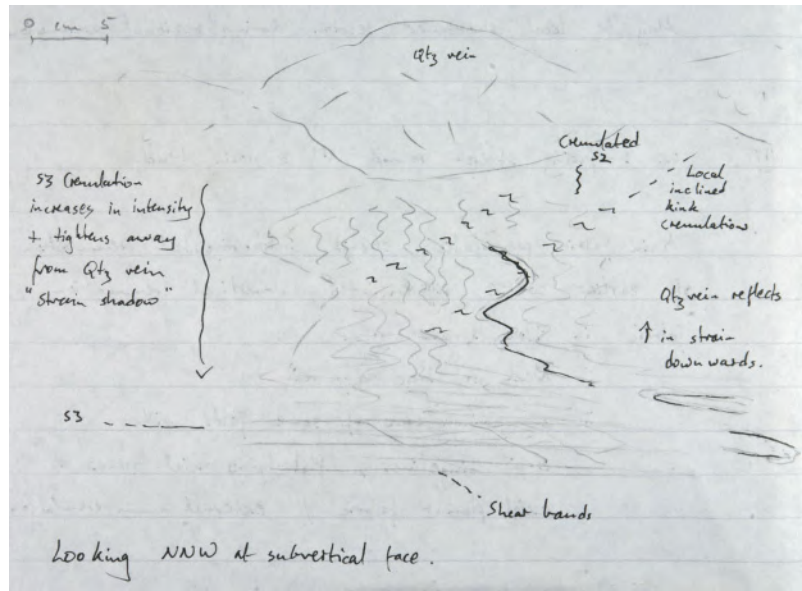 0 cm 5
Qtz vein
Crenulated
S2
Local
inclined
kink
crenulation
S3 Crenulation
increases in intensity
+ tightens away
from Qtz vein
"Strain shadow"
Qtz vein reflects
↑ in strain
downwards.
S3
Shear bands
Looking NNW at subvertical face.